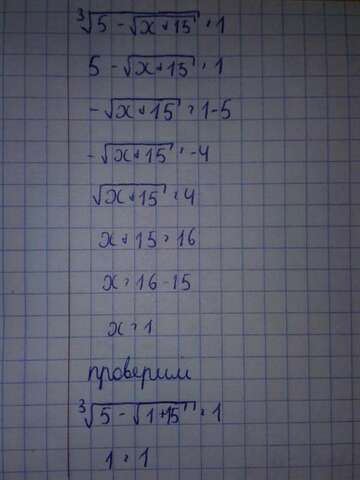 ∛(5 - √(x + 15)) = 1
5 - √(x + 15) = 1
-√(x + 15) = 1 - 5
-√(x + 15) = -4
√(x + 15) = 4
x + 15 = 16
x = 16 - 15
x = 1
проверим
∛(5 - √(1 + 15)) = 1
1 = 1